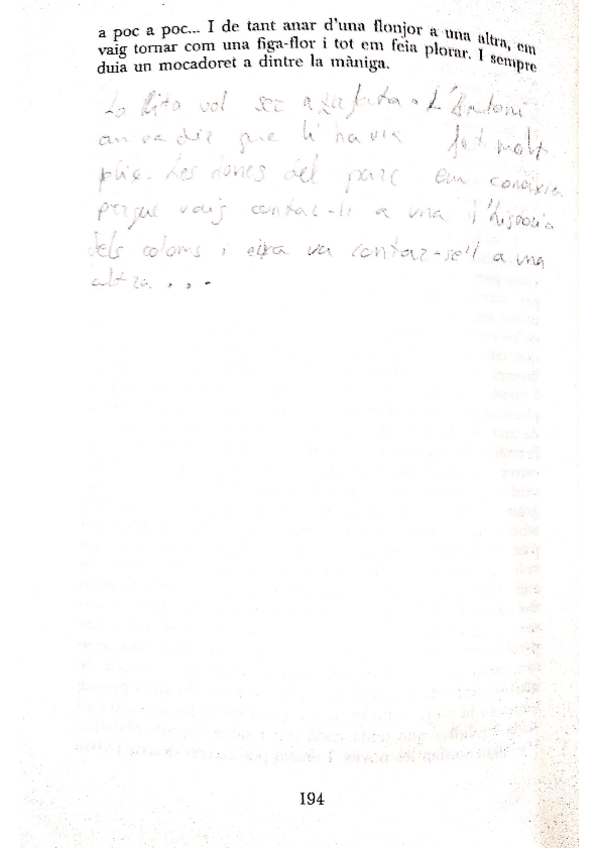 a poc a poc... I de tant anar d'una flonjor a una altra, em
vaig tornar com una figa-flor i tot em feia plorar. I sempre
duia un mocadoret a dintre la màniga.
La Rita vol ser azafata. L'Antoni
va dir que li havia fet molt
Les dones del parc em coneixia
perque vaig contar-li a una l'historia
dels coloms i va contar-se'l a una
altra...
194